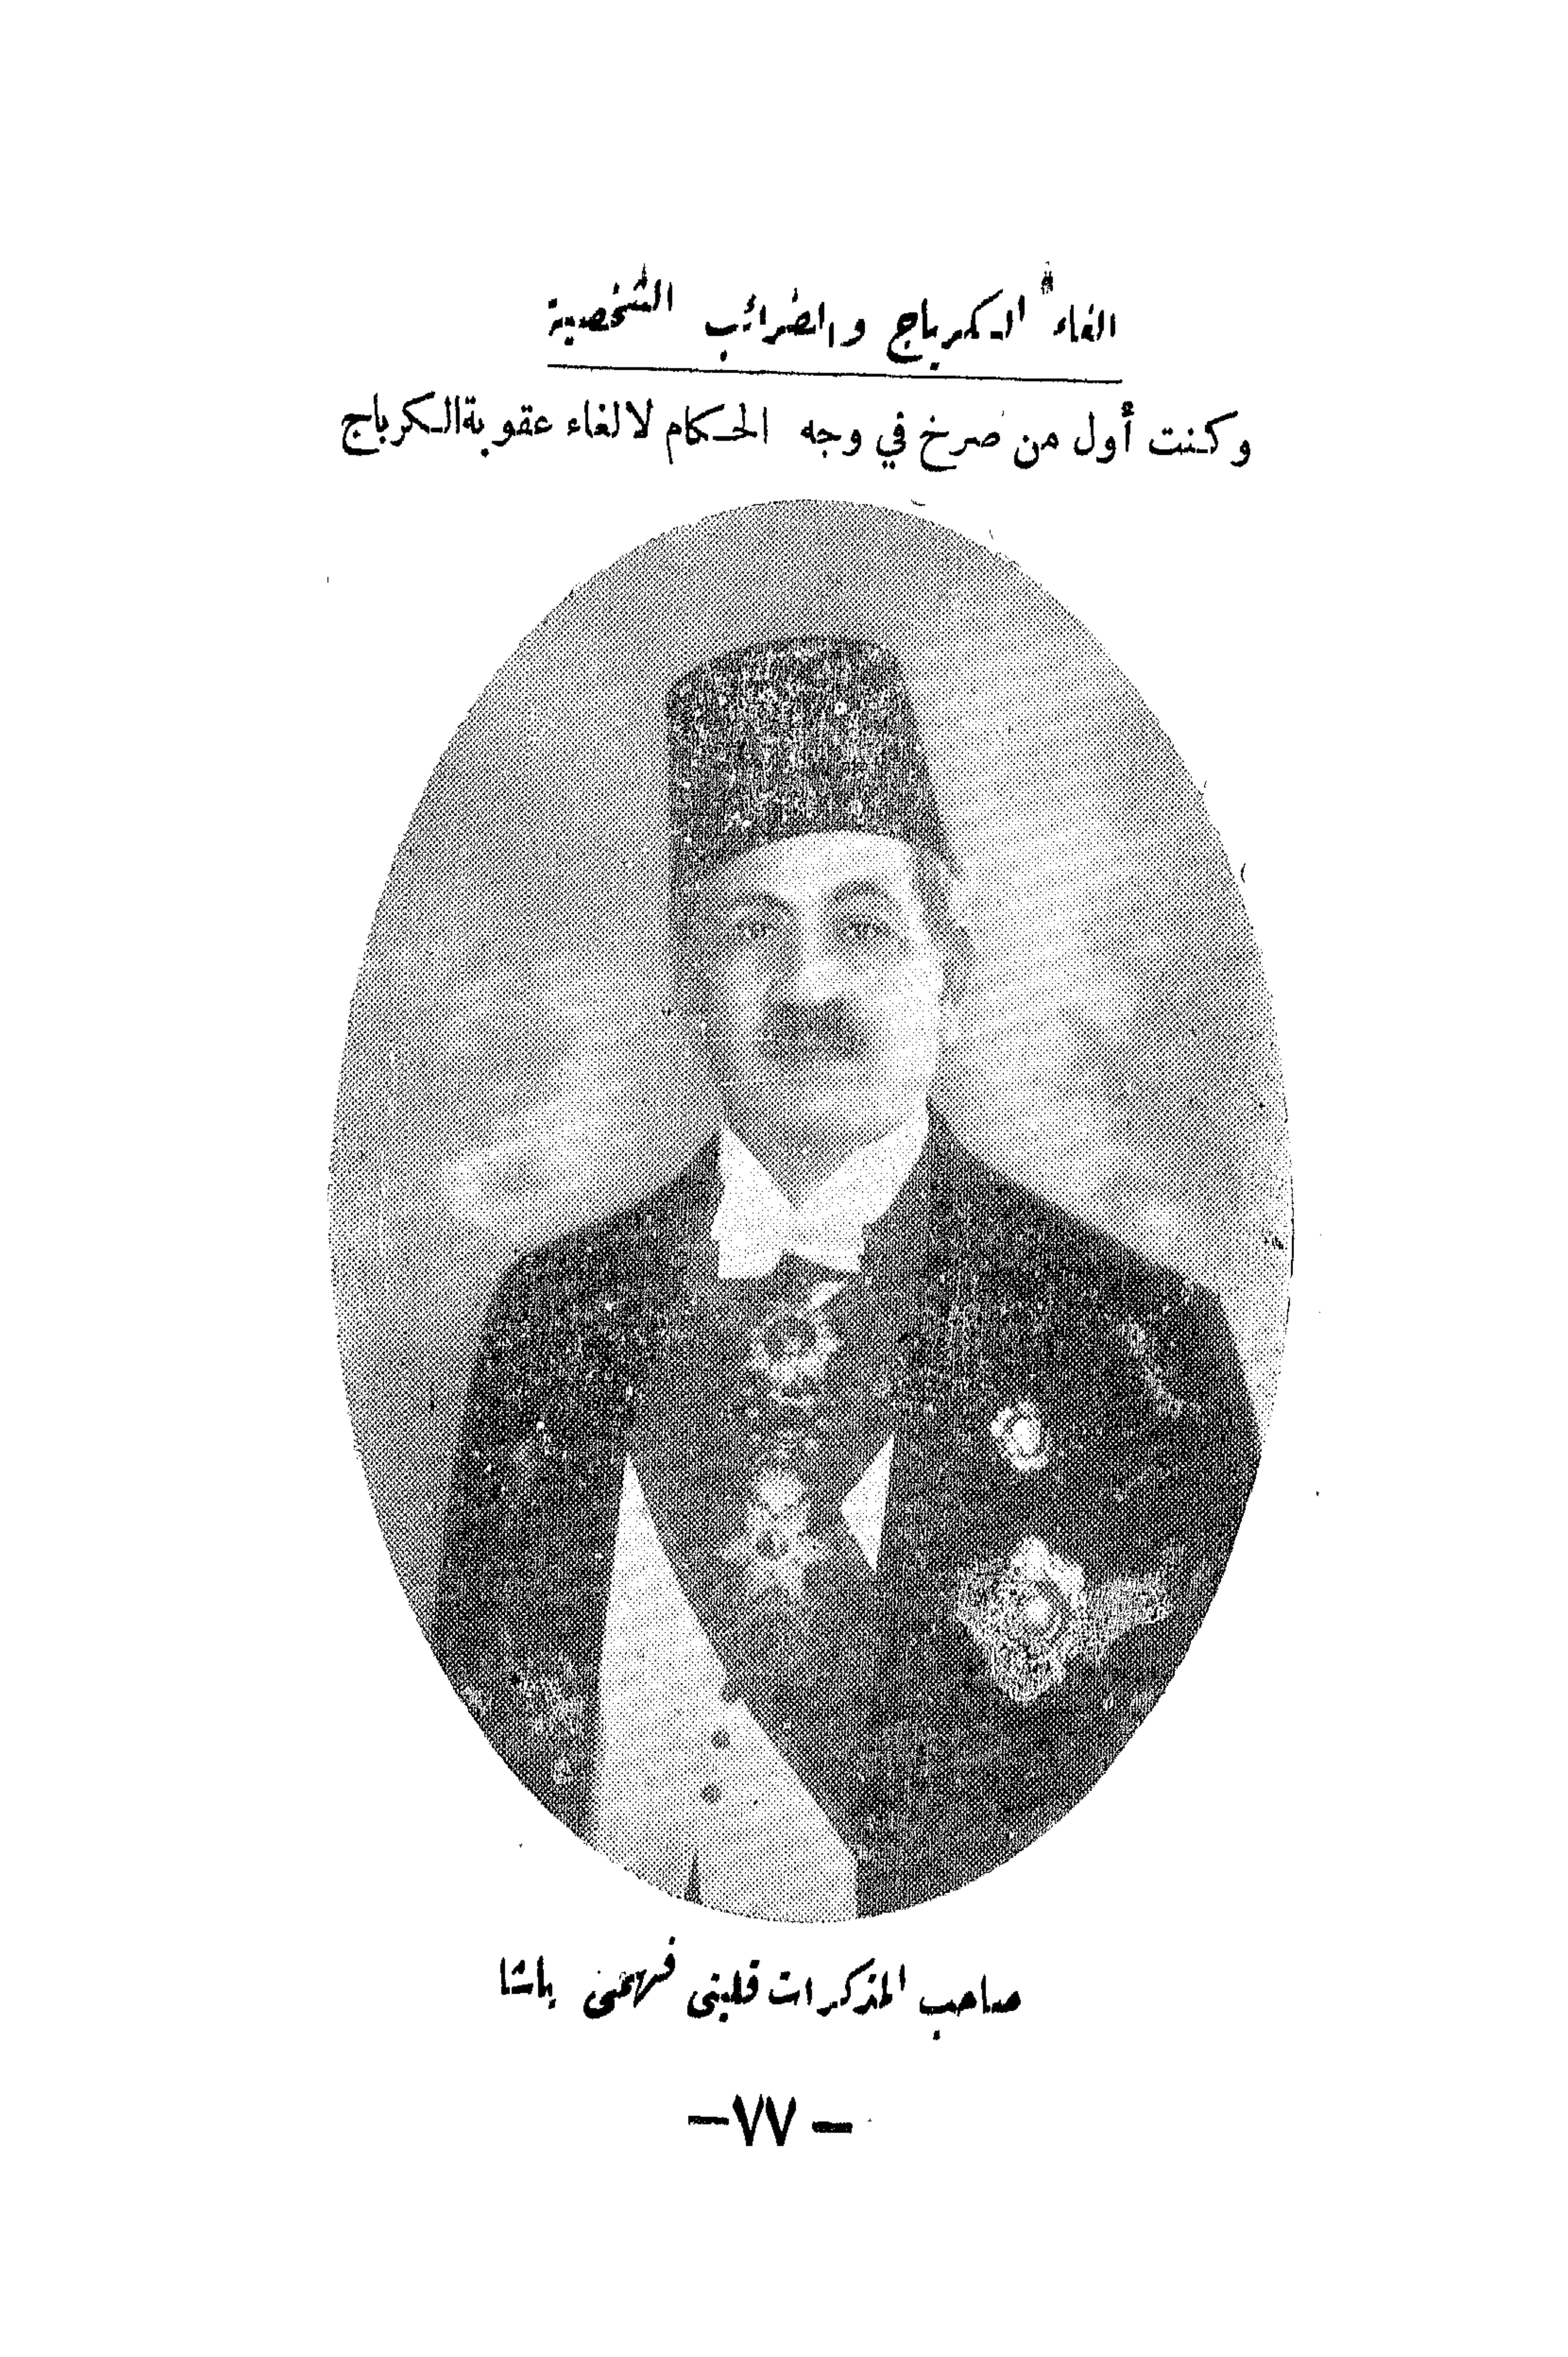 الغاء الكرباج والضرائب الشخصية
وكنت أول من صرخ في وجه الحكام لالغاء عقوبة الكرباج
صاحب المذكرات قليني فهمي باشا
— ٧٧ —